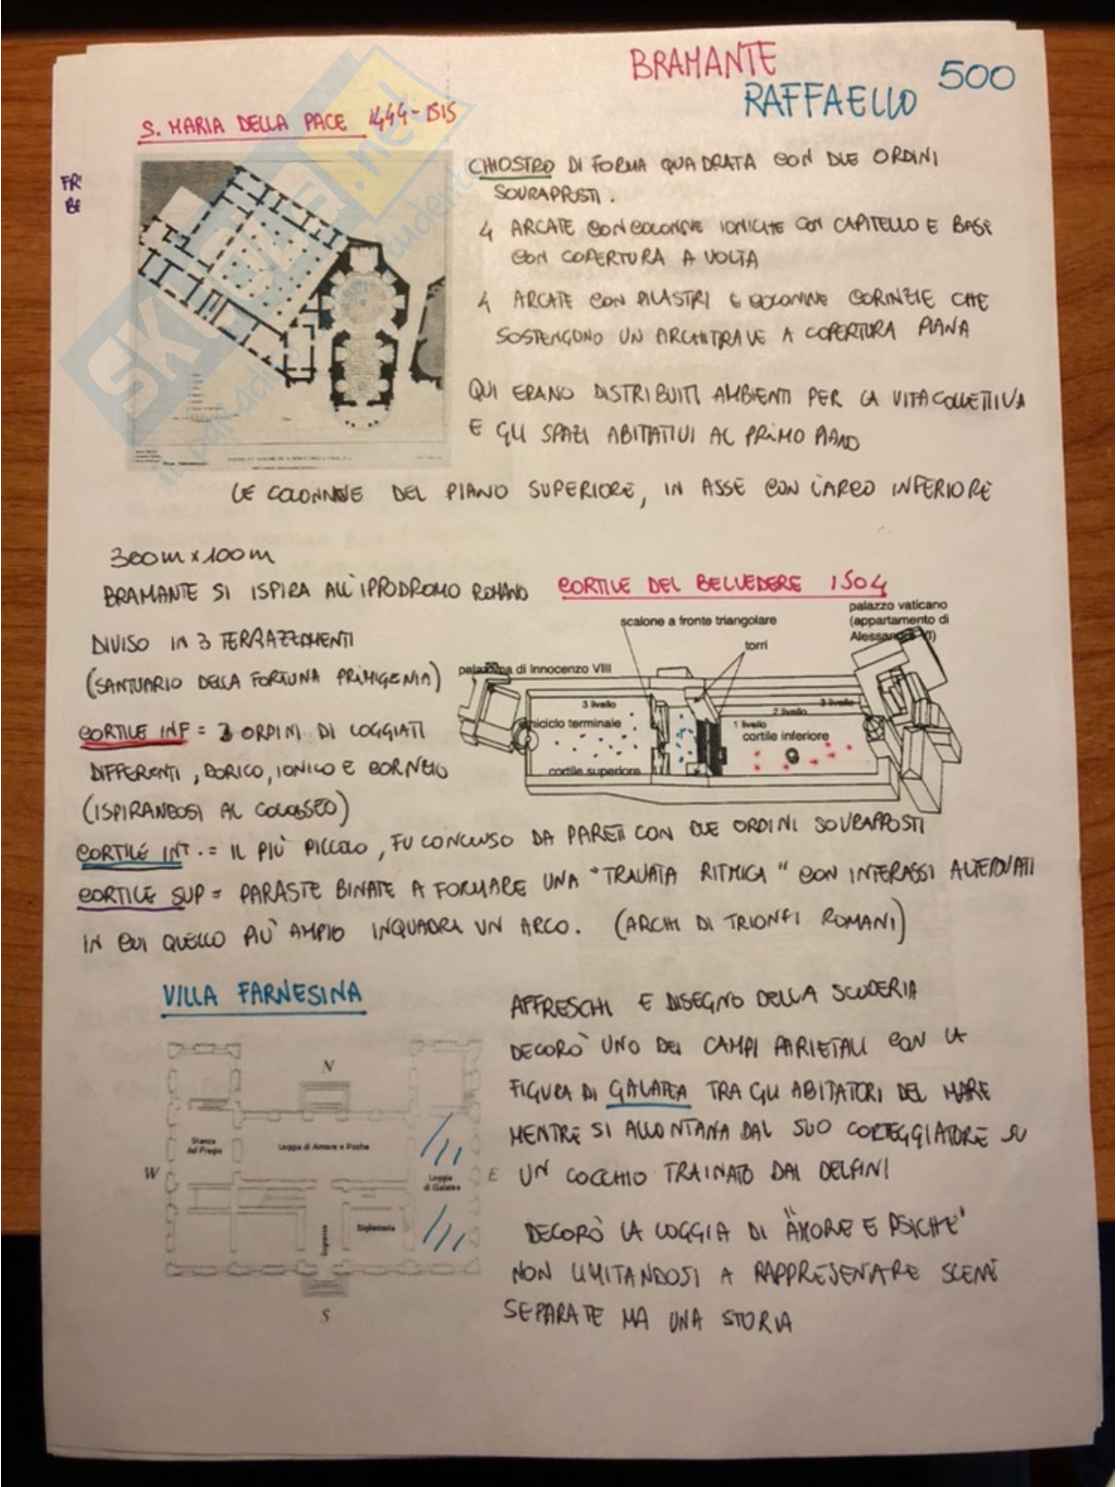 BRAMANTE
RAFFAELLO
500
S. MARIA DELLA PACE 1444-1515
CHIOSTRO DI FORMA QUADRATA CON DUE ORDINI
SOVRAPPOSTI.
4 ARCATE CON COLONNE IONICHE CON CAPITELLO E BASE
CON COPERTURA A VOLTA
4 ARCATE CON PILASTRI E COLONNE CORINZIE CHE
SOSTENGONO UN ARCHITRAVE A COPERTURA PIANA
QUI ERANO DISTRIBUITI AMBIENTI PER LA VITA COLLETTIVA
E GLI SPAZI ABITATIVI AL PRIMO PIANO
LE COLONNE DEL PIANO SUPERIORE, IN ASSE CON L'ARCO INFERIORE
300m x 100m
BRAMANTE SI ISPIRA ALL'IPPODROMO ROMANO
CORTILE DEL BELVEDERE 1504
DIVISO IN 3 TERRAZZAMENTI
(SANTUARIO DELLA FORTUNA PRIMIGENIA)
palazzo vaticano
(appartamento di
scalone a fronte triangolare
torri
di Innocenzo VIII
3 livello
3 livello
2 livello
1 livello
terminale
cortile inferiore
cortile superiore
CORTILE INF = 3 ORDINI DI LOGGIATI
DIFFERENTI, DORICO, IONICO E CORINZIO
(ISPIRANDOSI AL COLOSSEO)
CORTILE INT. = IL PIÙ PICCOLO, FU CONCLUSO DA PARETI CON DUE ORDINI SOVRAPPOSTI
CORTILE SUP = PARASTE BINATE A FORMARE UNA "TRAVATA RITMICA" CON INTERASSI ALTERNATI
IN CUI QUELLO PIÙ AMPIO INQUADRA UN ARCO. (ARCHI DI TRIONFI ROMANI)
VILLA FARNESINA
AFFRESCHI E DISEGNO DELLA SCUDERIA
DECORÒ UNO DEI CAMPI PARIETALI CON LA
FIGURA DI GALATEA TRA GLI ABITATORI DEL MARE
MENTRE SI ALLONTANA DAL SUO CORTEGGIATORE SU
UN COCCHIO TRAINATO DAI DELFINI
DECORÒ LA LOGGIA DI "AMORE E PSICHE"
NON LIMITANDOSI A RAPPRESENTARE SCENE
SEPARATE MA UNA STORIA
N
Stanza
del Fregio
Loggia di Amore e Psiche
Loggia
di Galatea
W
E
Ingresso
Biglietteria
S